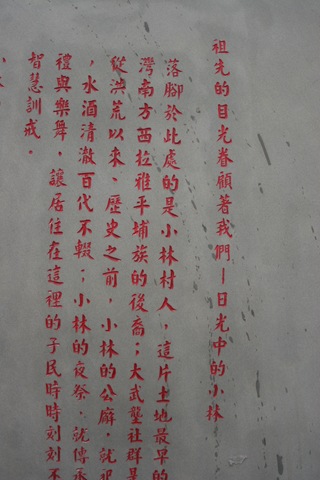 祖先的目光眷顧著我們—日光中的小林
落腳於此處的是小林村人，這片土地最早的
灣南方西拉雅平埔族的後裔；大武壟社群是
從洪荒以來、歷史之前，小林的公廨，就祀
，水酒清澈百代不輟；小林的夜祭，就傳承
禮與樂舞，讓居住在這裡的子民時時刻刻不
智慧訓戒。